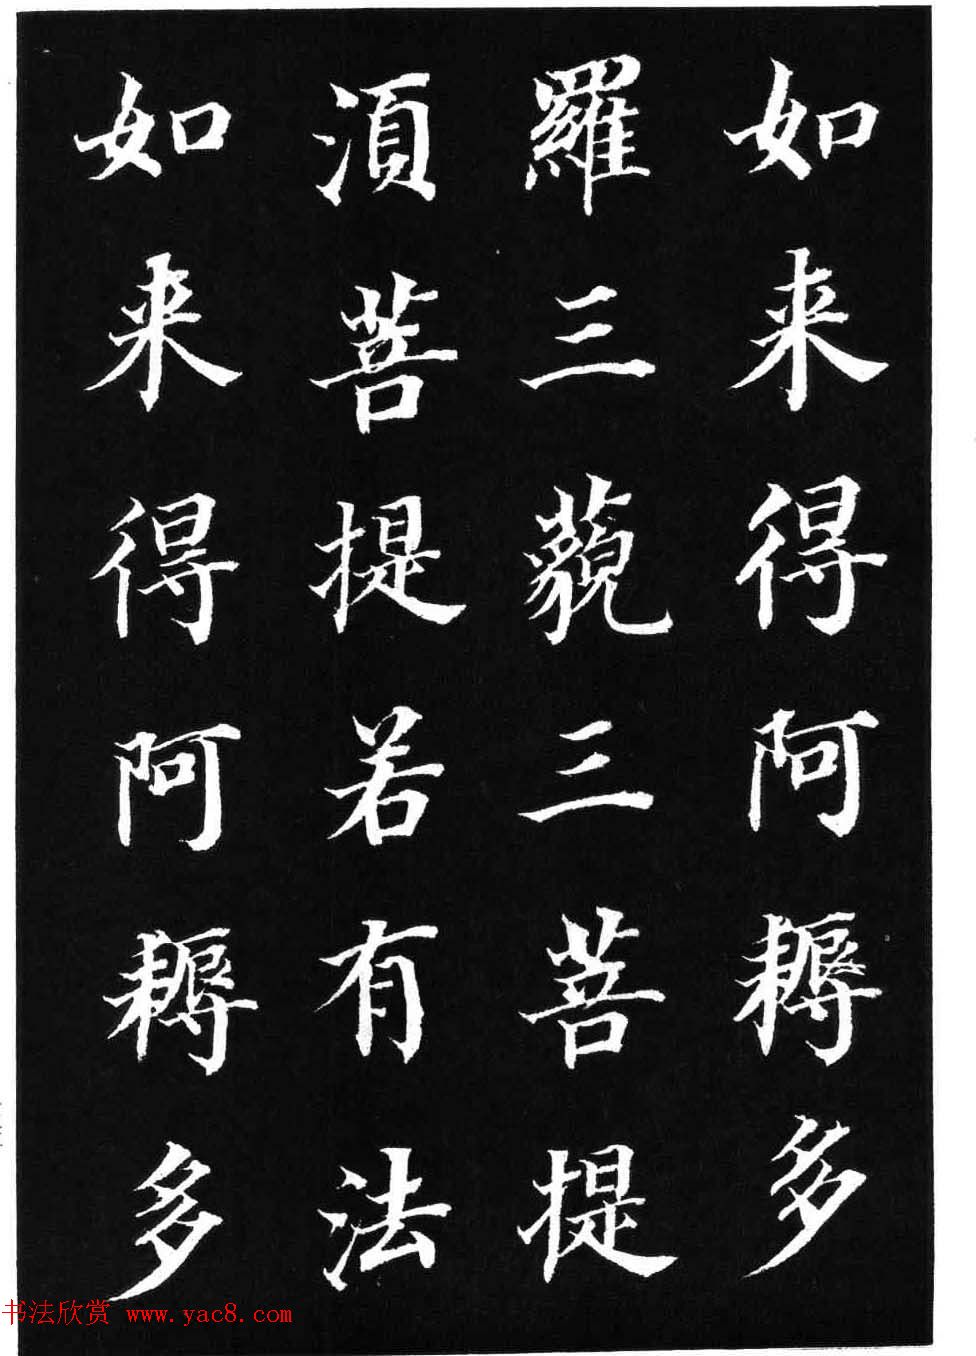 如来得阿耨多
羅三藐三菩提
湏菩提若有法
如来得阿耨多
书法欣赏 www.yac8.com